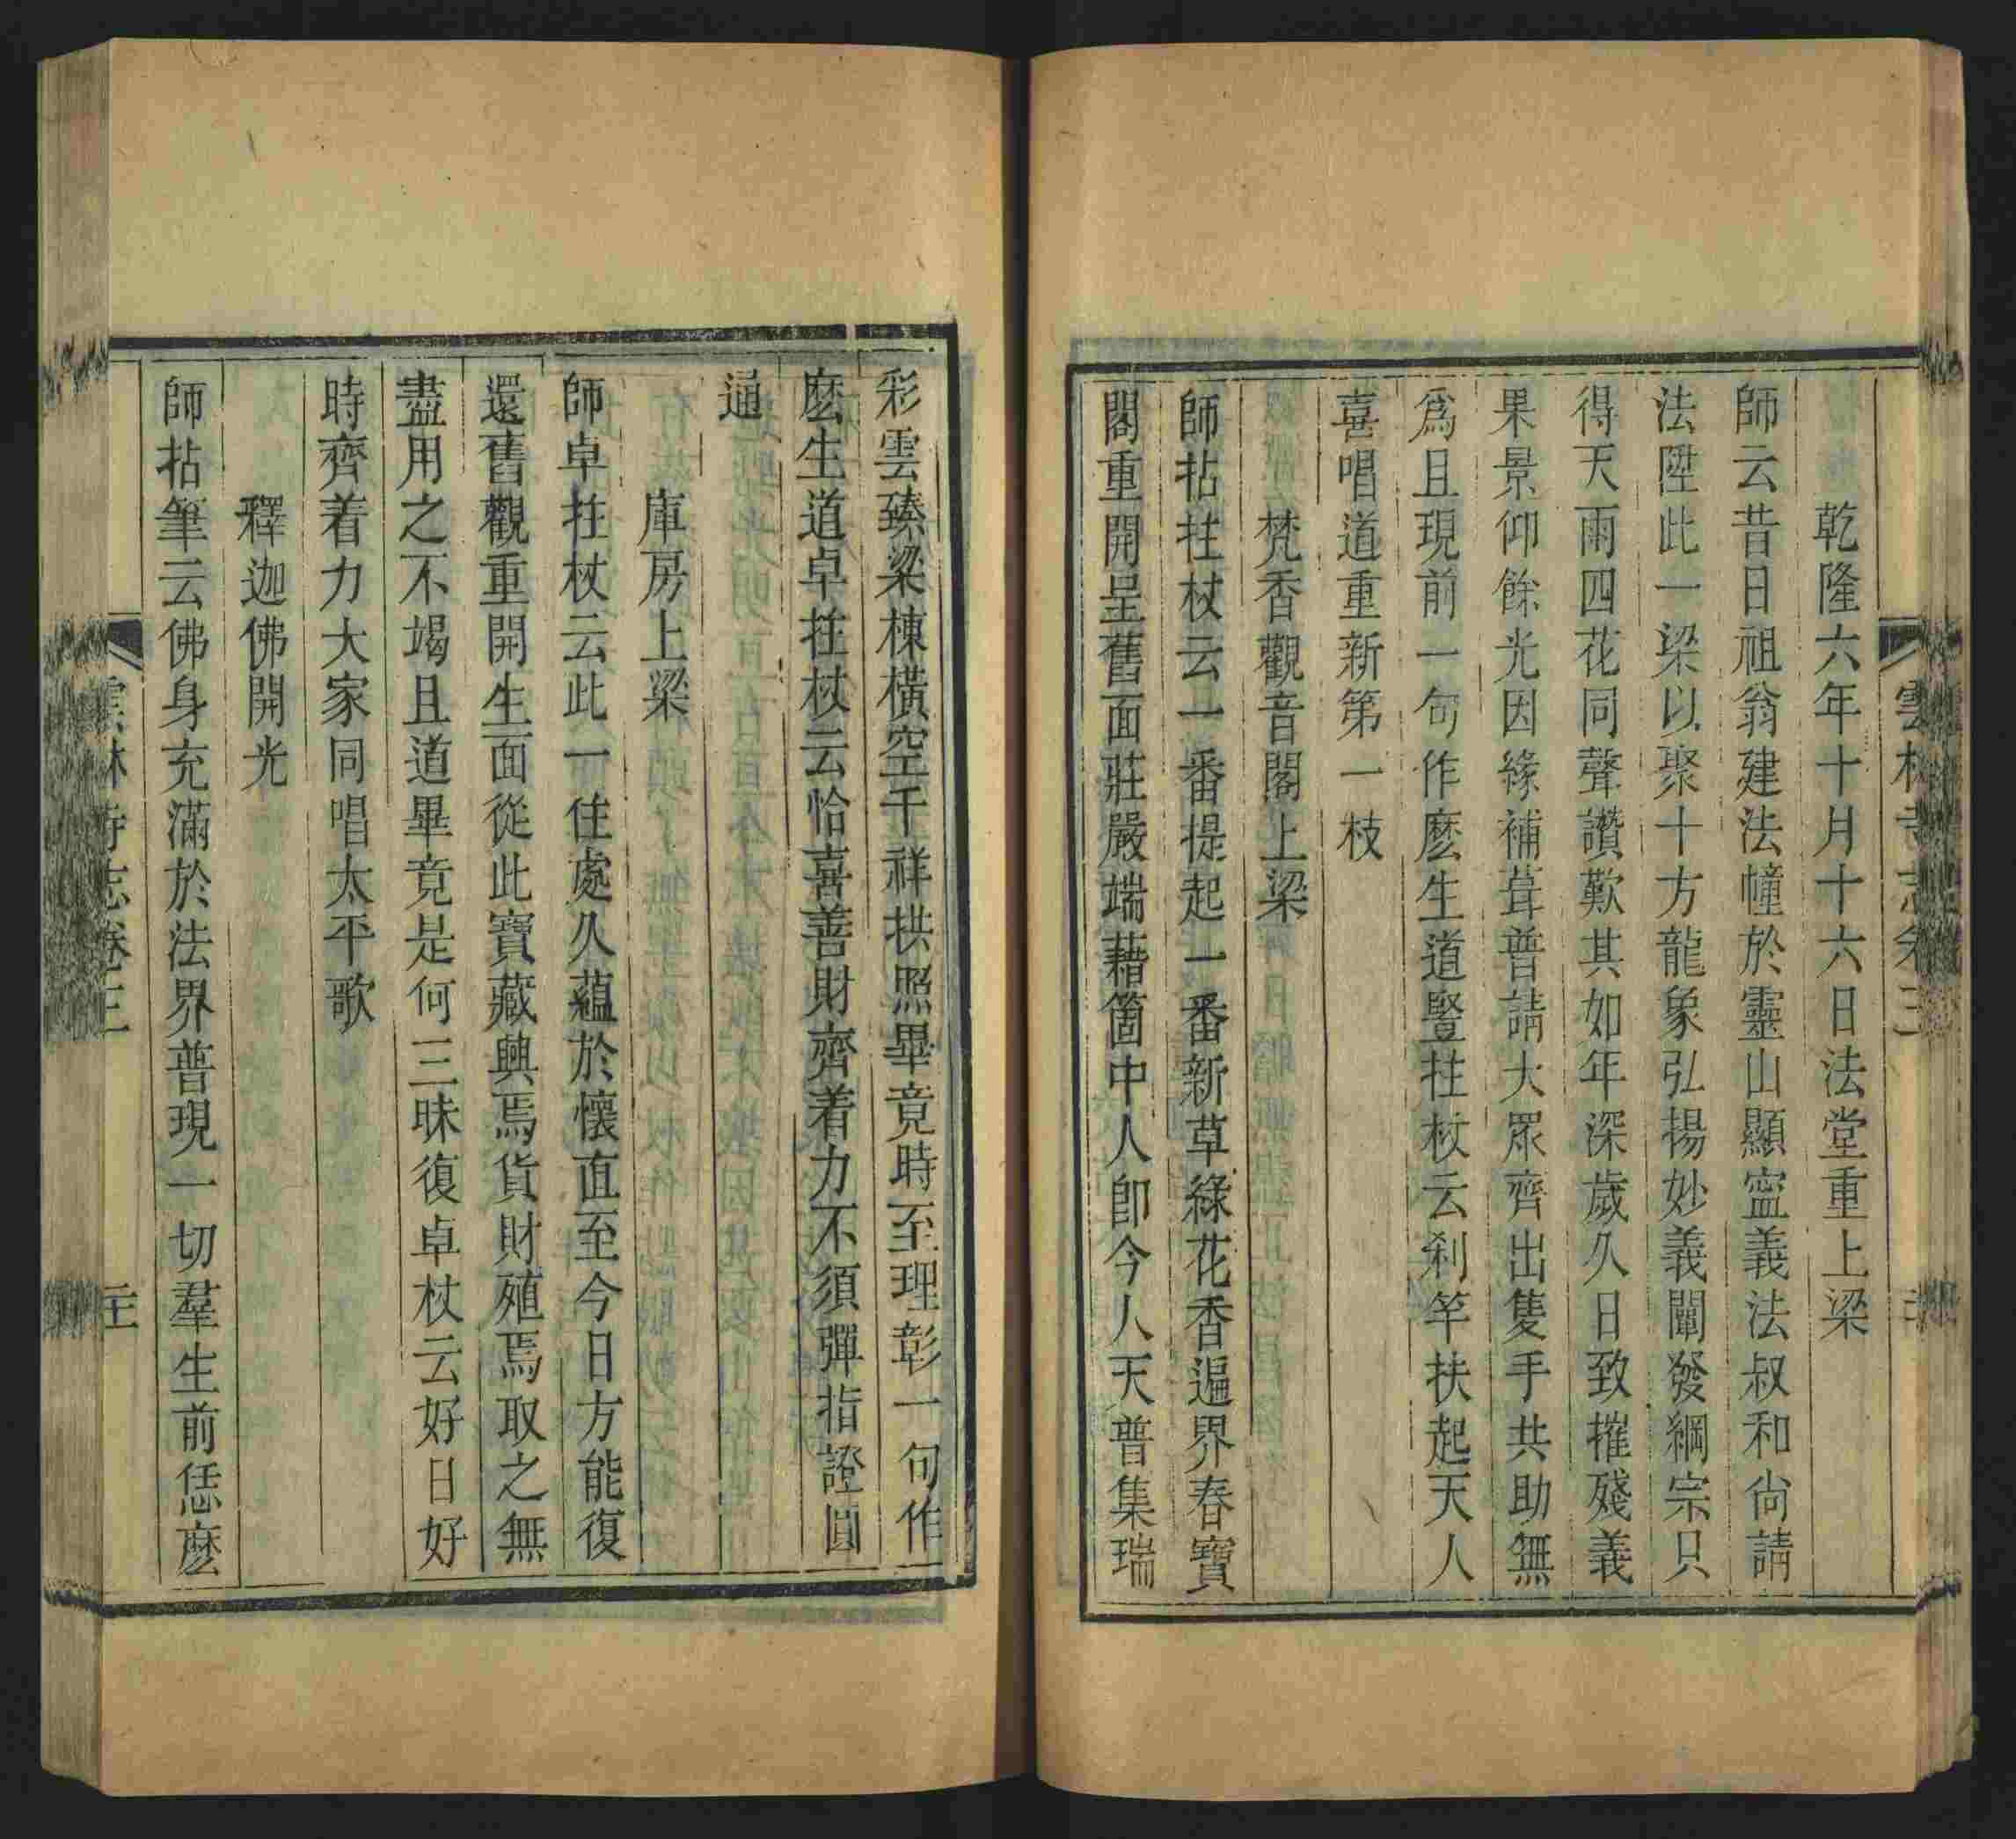 乾隆六年十月十六日法堂重上梁
師云昔日祖翁建法幢於靈山顯寍義法叔和尙請
法陞此一梁以聚十方龍象弘揚妙義闡發綱宗只
得天雨四花同聲讚歎其如年深歲久日致摧殘義
果景仰餘光因緣補葺普請大眾齊出隻手共助無
爲且現前一句作麽生道豎拄杖云刹竿扶起天人
喜唱道重新第一枝
梵香觀音閣上梁
師拈拄杖云一番提起一番新草綠花香遍界春寶
閣重開呈舊面莊嚴端藉箇中人卽今人天普集瑞
彩雲臻梁棟橫空千祥拱照畢竟時至理彰一句作
麽生道卓拄杖云恰喜善財齊着力不須彈指證圓
通
庫房上梁
師卓拄杖云此一住處久蘊於懷直至今日方能復
還舊觀重開生面從此寶藏興焉貨財殖焉取之無
盡用之不竭且道畢竟是何三昧復卓杖云好日好
時齊着力大家同唱太平歌
釋迦佛開光
師拈筆云佛身充滿於法界普現一切羣生前恁麽
雲林寺志卷三